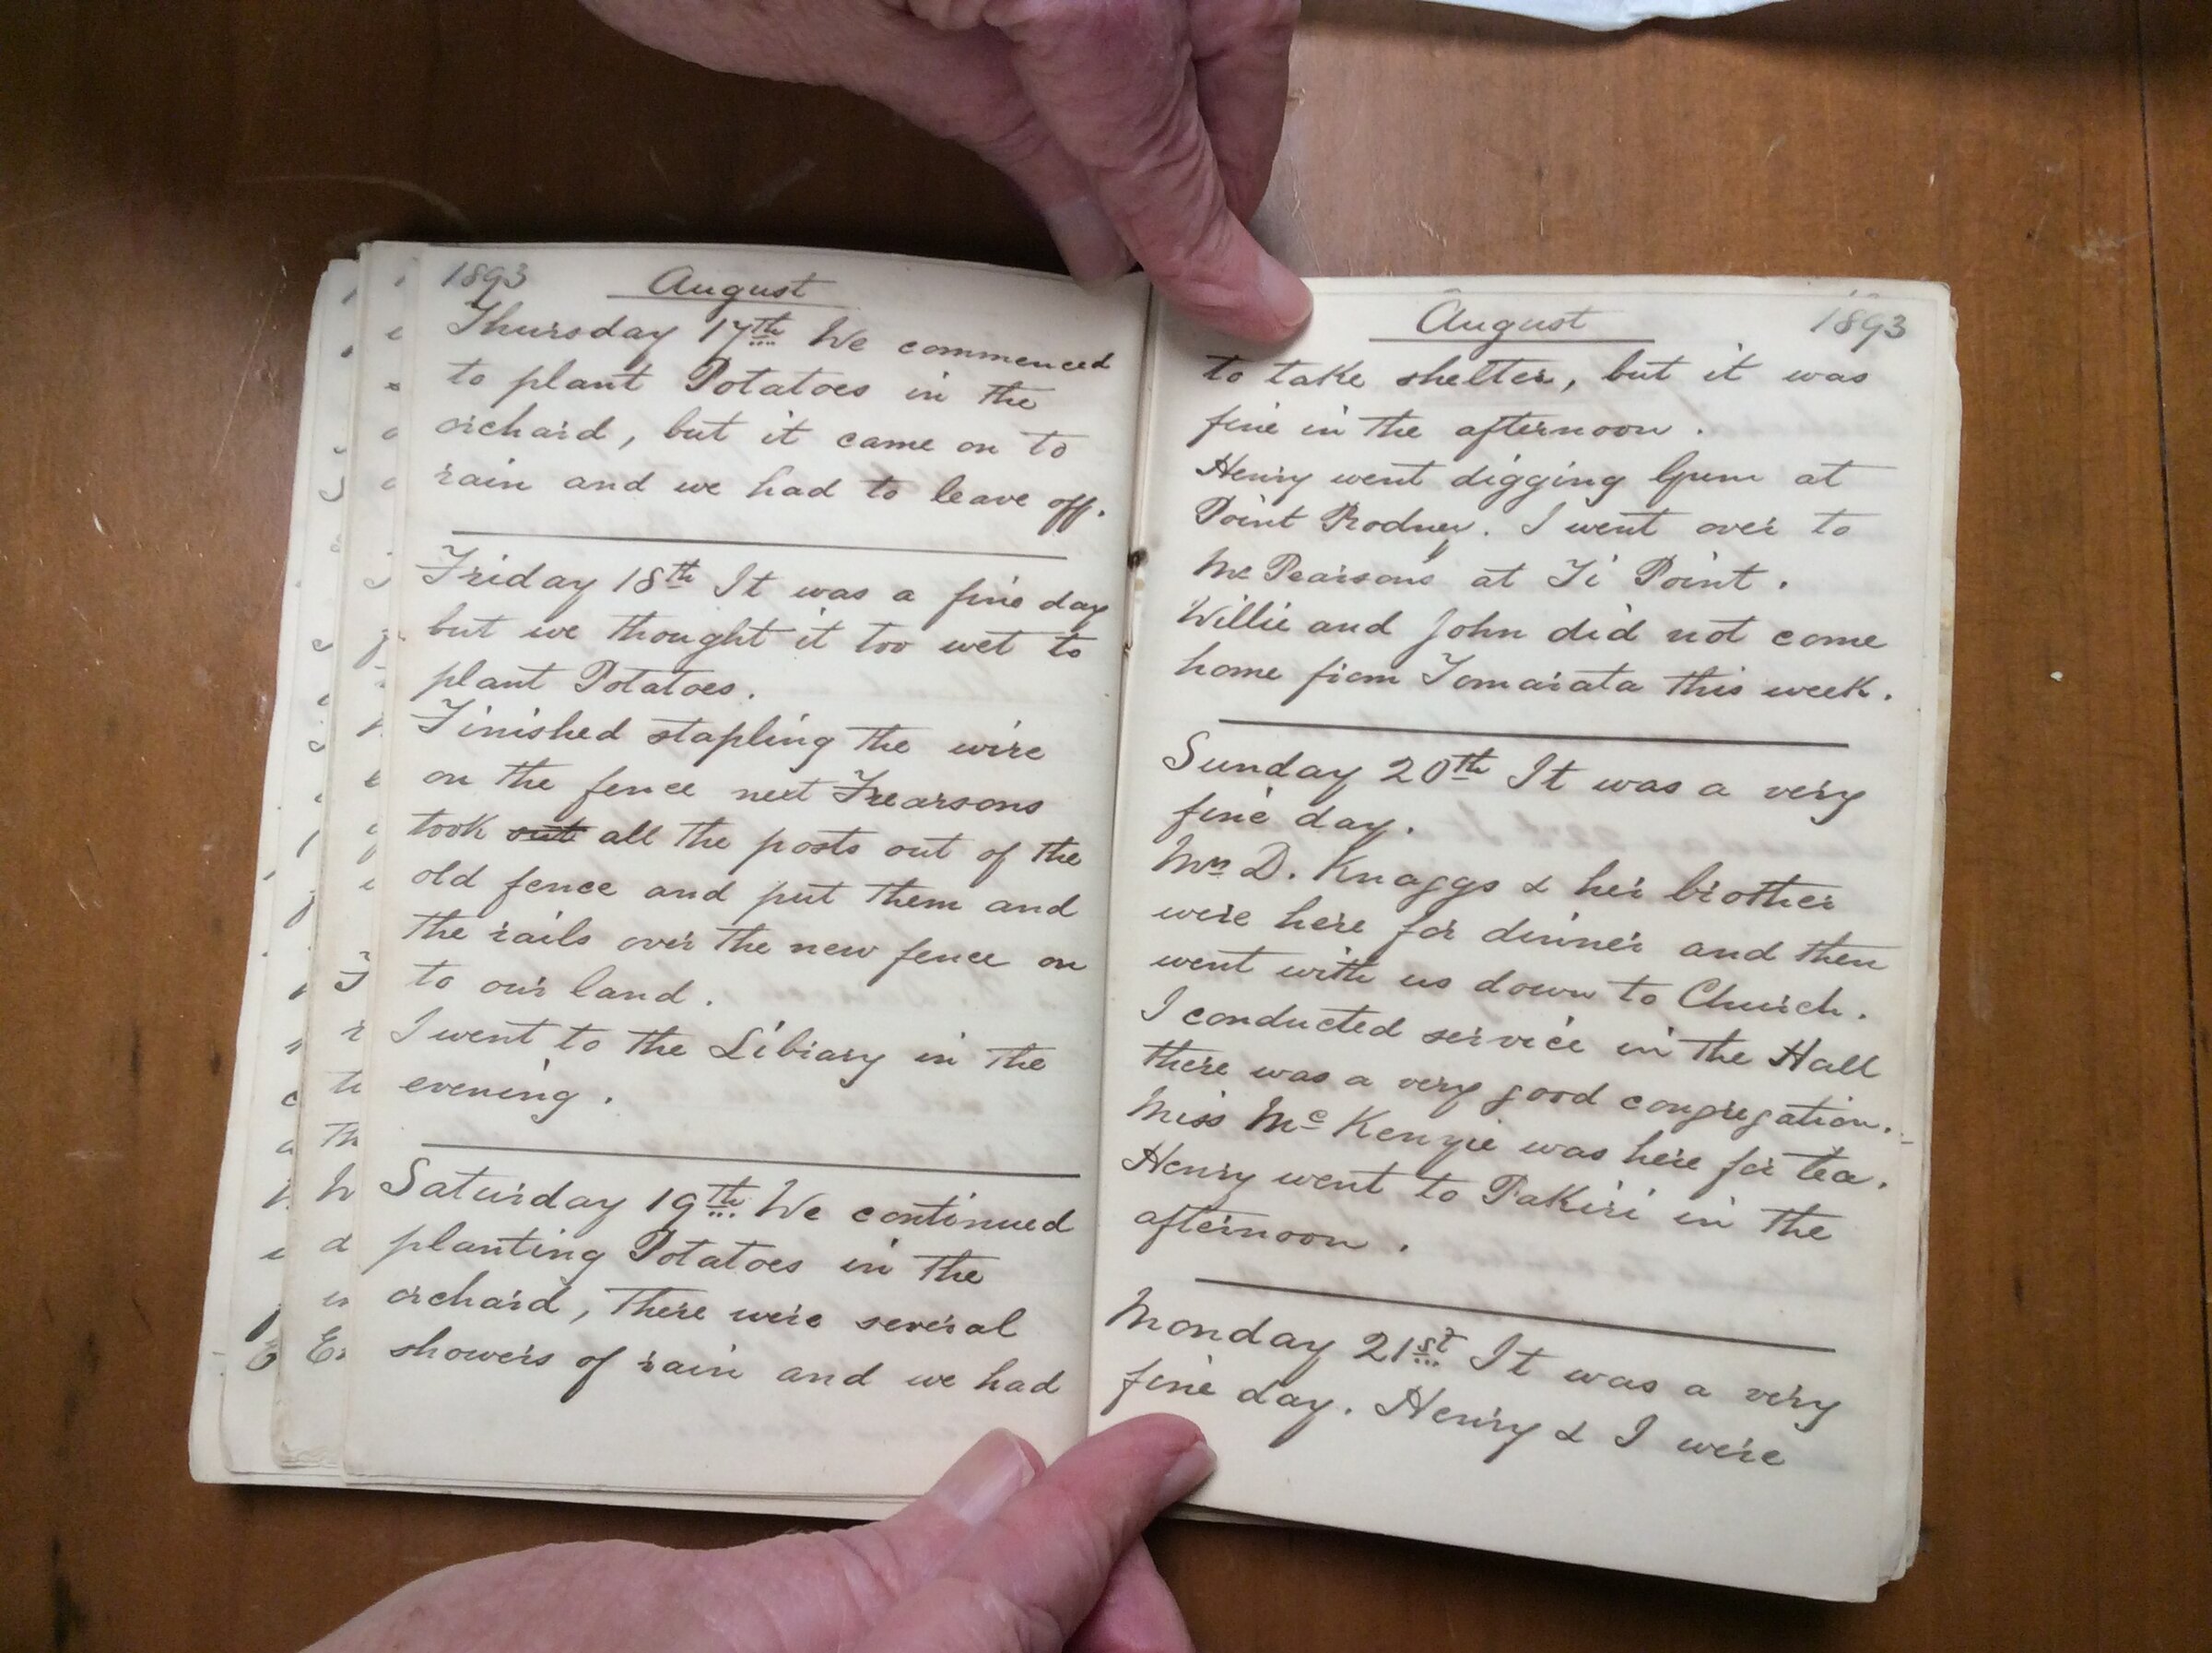 1893 August
Thursday 17th We commenced
to plant Potatoes in the
orchard, but it came on to
rain and we had to leave off.
Friday 18th It was a fine day
but we thought it too wet to
plant Potatoes.
Finished stapling the wire
on the fence next Frearsons
took out all the posts out of the
old fence and put them and
the rails over the new fence on
to our land.
I went to the Library in the
evening.
Saturday 19th We continued
planting Potatoes in the
orchard, There were several
showers of rain and we had
August 1893
to take shelter, but it was
fine in the afternoon.
Henry went digging Gum at
Point Rodney. I went over to
Mr Pearsons at Ti Point.
Willie and John did not come
home from Tomarata this week.
Sunday 20th It was a very
fine day.
Mrs D. Knaggs & her brother
were here for dinner and then
went with us down to Church.
I conducted service in the Hall
there was a very good congregation.
Miss McKenzie was here for tea.
Henry went to Pakiri in the
afternoon.
Monday 21st It was a very
fine day. Henry & I were